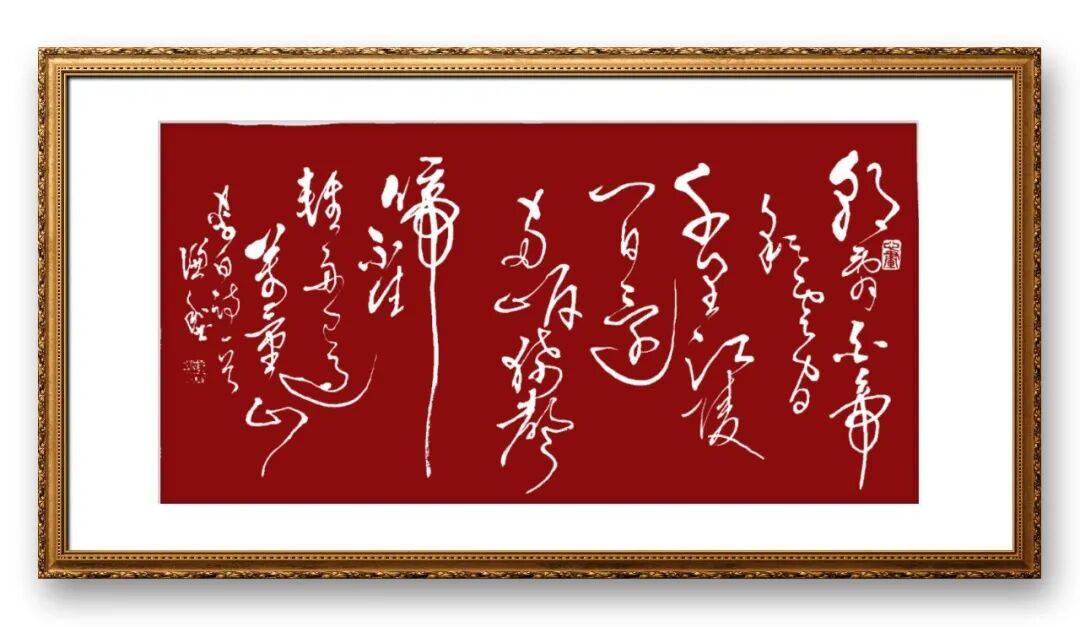 朝辞白帝
彩云间
千里江陵
一日還
两岸猿聲
啼
不住
輕舟已過
萬重山
李白诗一首